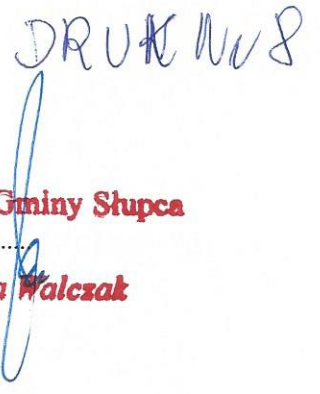 DRUK Nr 8
Gminy Słupca
......
a Walczak